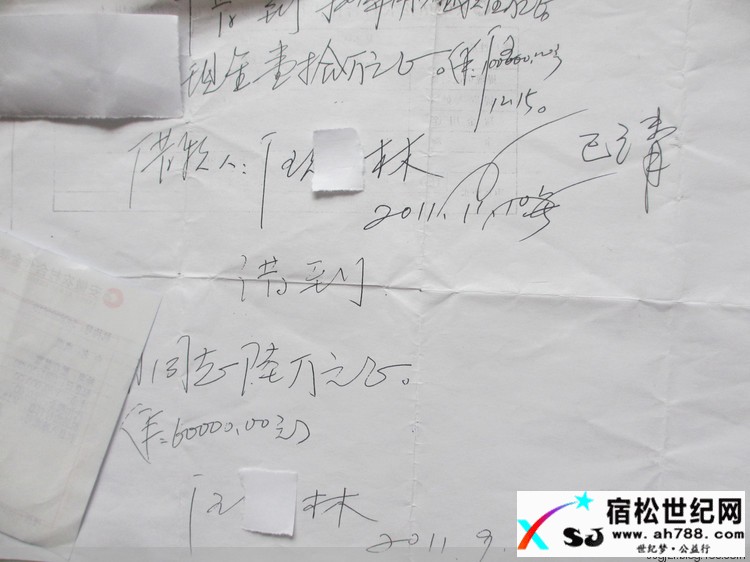 借到
现金壹拾万元正。(¥:100000.00元)
12.15。
已清
借款人:汪 林
2011.11.10号
借到
同志陆万元正。
(¥:60000.00元)
汪 林
2011.9.
宿松世纪网
www.ah788.com
世纪梦·公益行
SJ